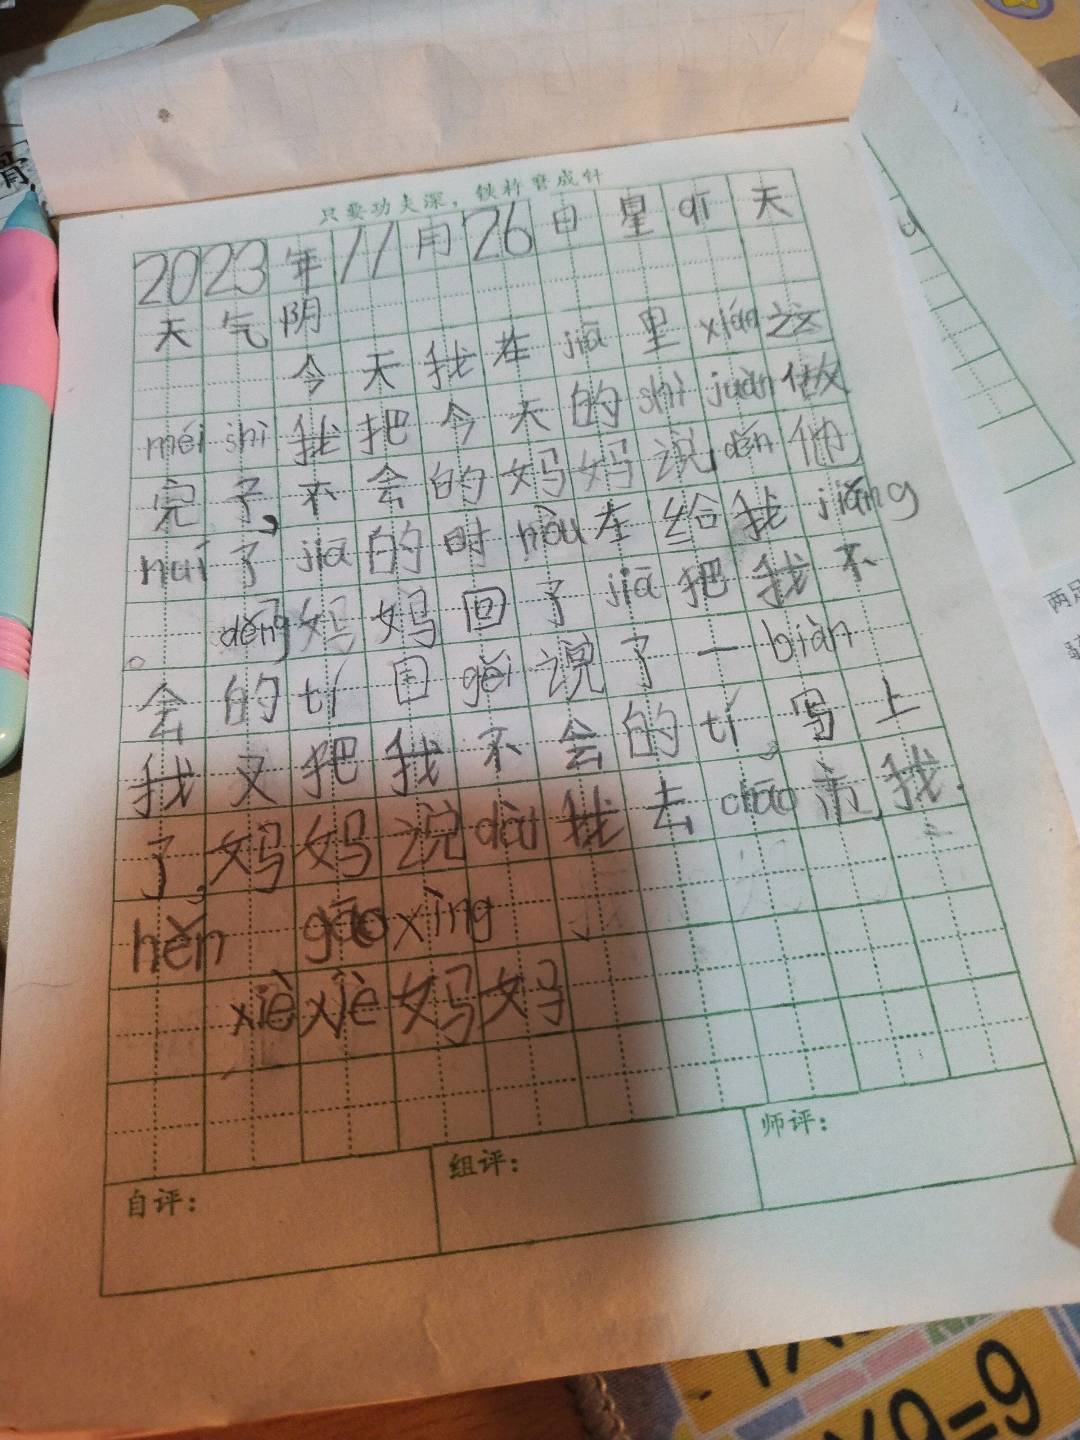 只要功夫深，铁杵磨成针
2023年11月26日星qī天
天气阴
今天我在jiā里xián这
méi shì我把今天的shì juàn做
完了，不会的妈妈说děn他
huí了jiā的时hòu在给我jiǎng
。děng妈妈回了jiā把我不
会的tí回gěi说了一biàn
我又把我不会的tí。写上
了，妈妈说dài我去chāo市我.
hěn gāo xìng
xiè xiè妈妈
自评：
组评：
师评：
9=9